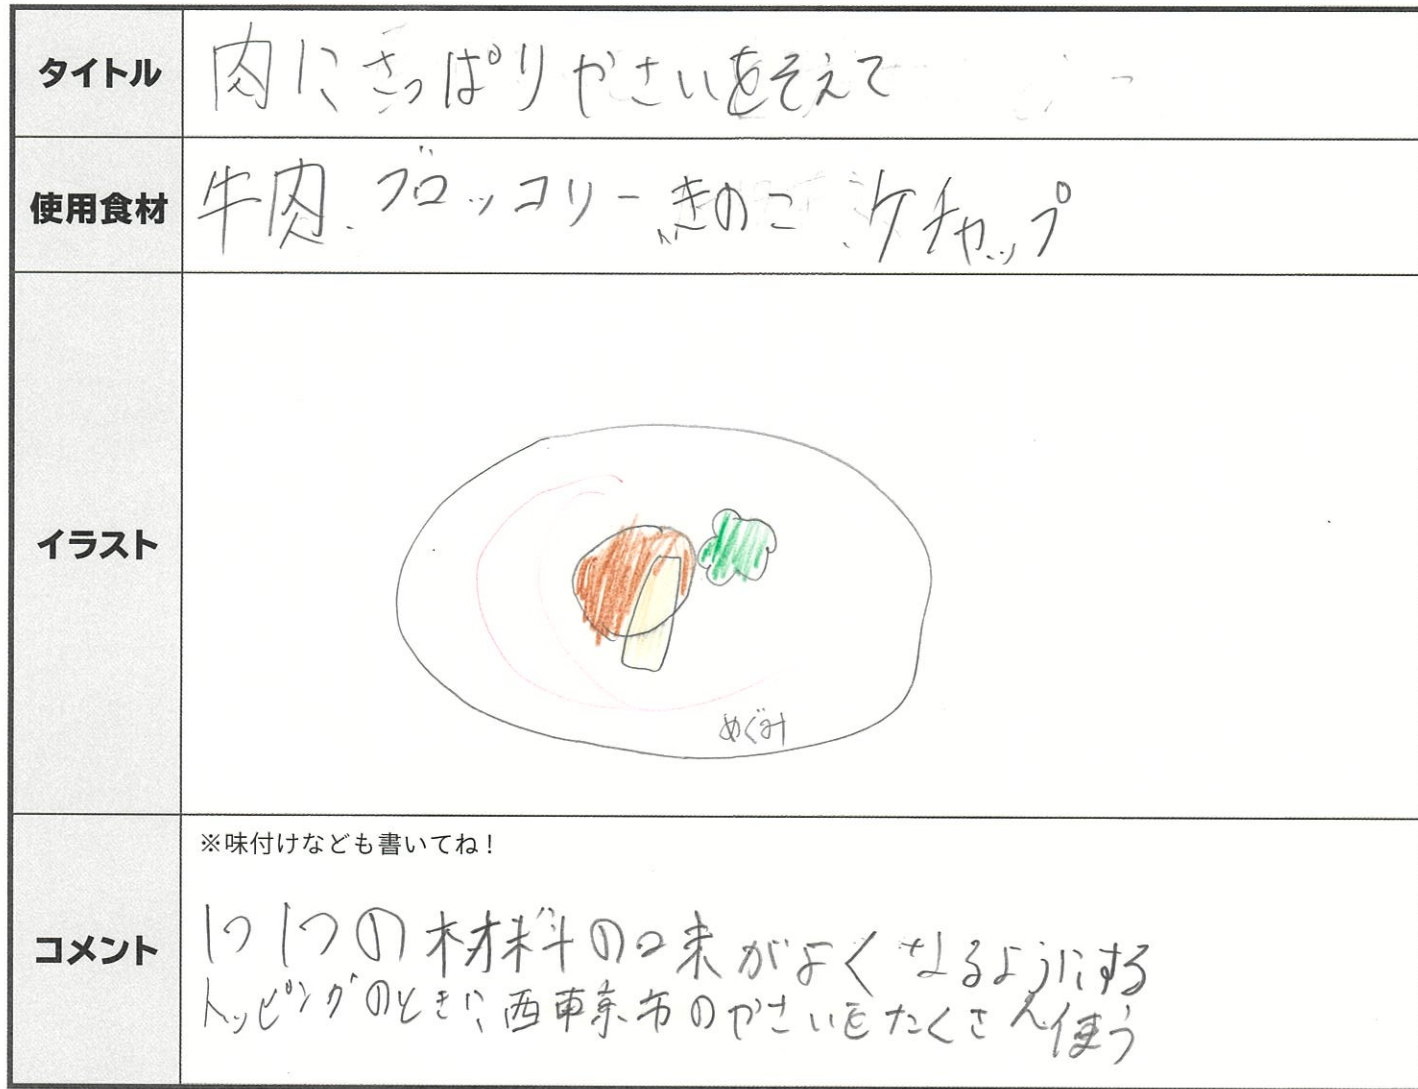 タイトル
肉にさっぱりやさいをそえて
使用食材
牛肉、ブロッコリー、きのこ、ケチャップ
イラスト
めぐみ
※味付けなども書いてね!
コメント
1つ1つの材料の味がよくなるようにする
トッピングのときに、西東京市のやさいをたくさん使う